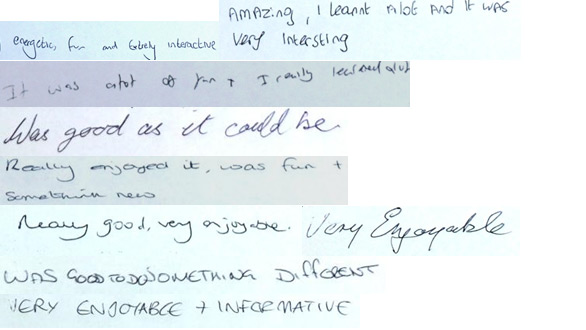 AMAZING, I learnt Alot AND It WAS
Very Intersting
energetic, fun and interactive
It was alot of fun + I really learned alot
Was good as it could be
Really enjoyed it, was fun +
Somethin new
Really good, very enjoyable.
Very Enjoyable
WAS GOOD TO DO SOMETHING DIFFERENT
VERY ENJOYABLE + INFORMATIVE